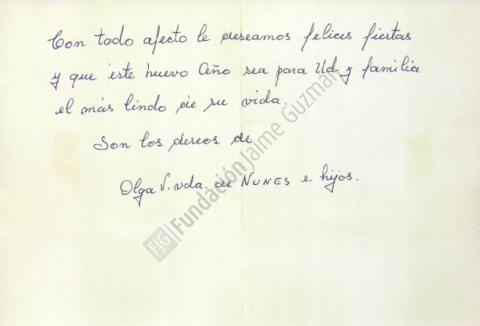 Con todo afecto le deseamos felices fiestas
y que este nuevo Año sea para Ud. y familia
el más lindo de su vida.
Son los deseos de
Olga V. vda. de NUNES e hijos.
FJG Fundación Jaime Guzmán